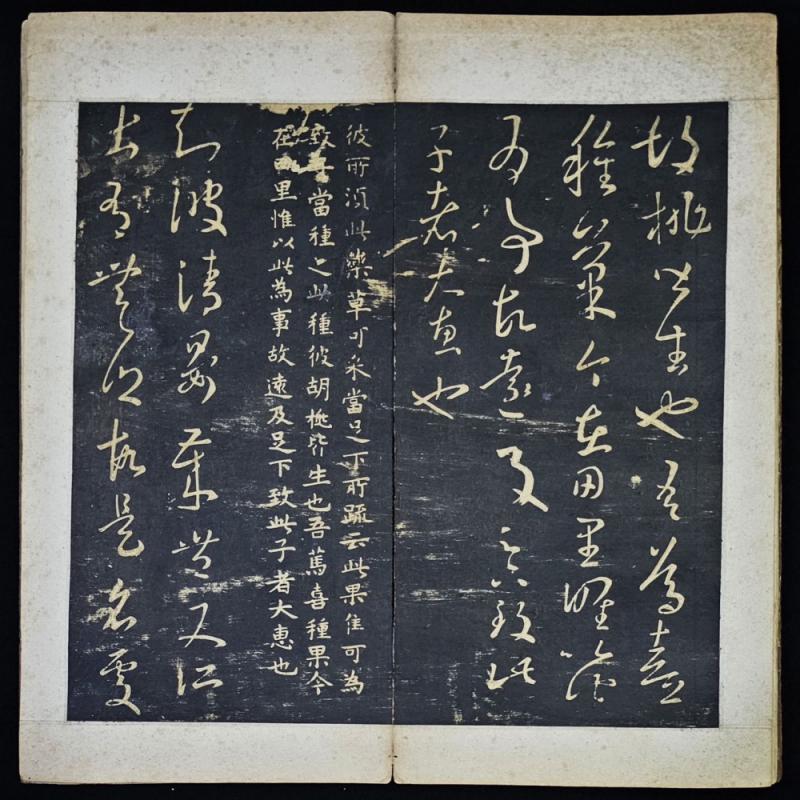 胡桃皆生也吾篤喜
種菓今在田里唯以此
為事故遠及足下致此
子者大惠也
彼所湏此藥草可示當足下所疏云此果佳可為
致子當種之此種彼胡桃皆生也吾篤喜種果今
在田里惟以此為事故遠及足下致此子者大惠也
知彼清晏歲豐又所
出有無鄉故是名處